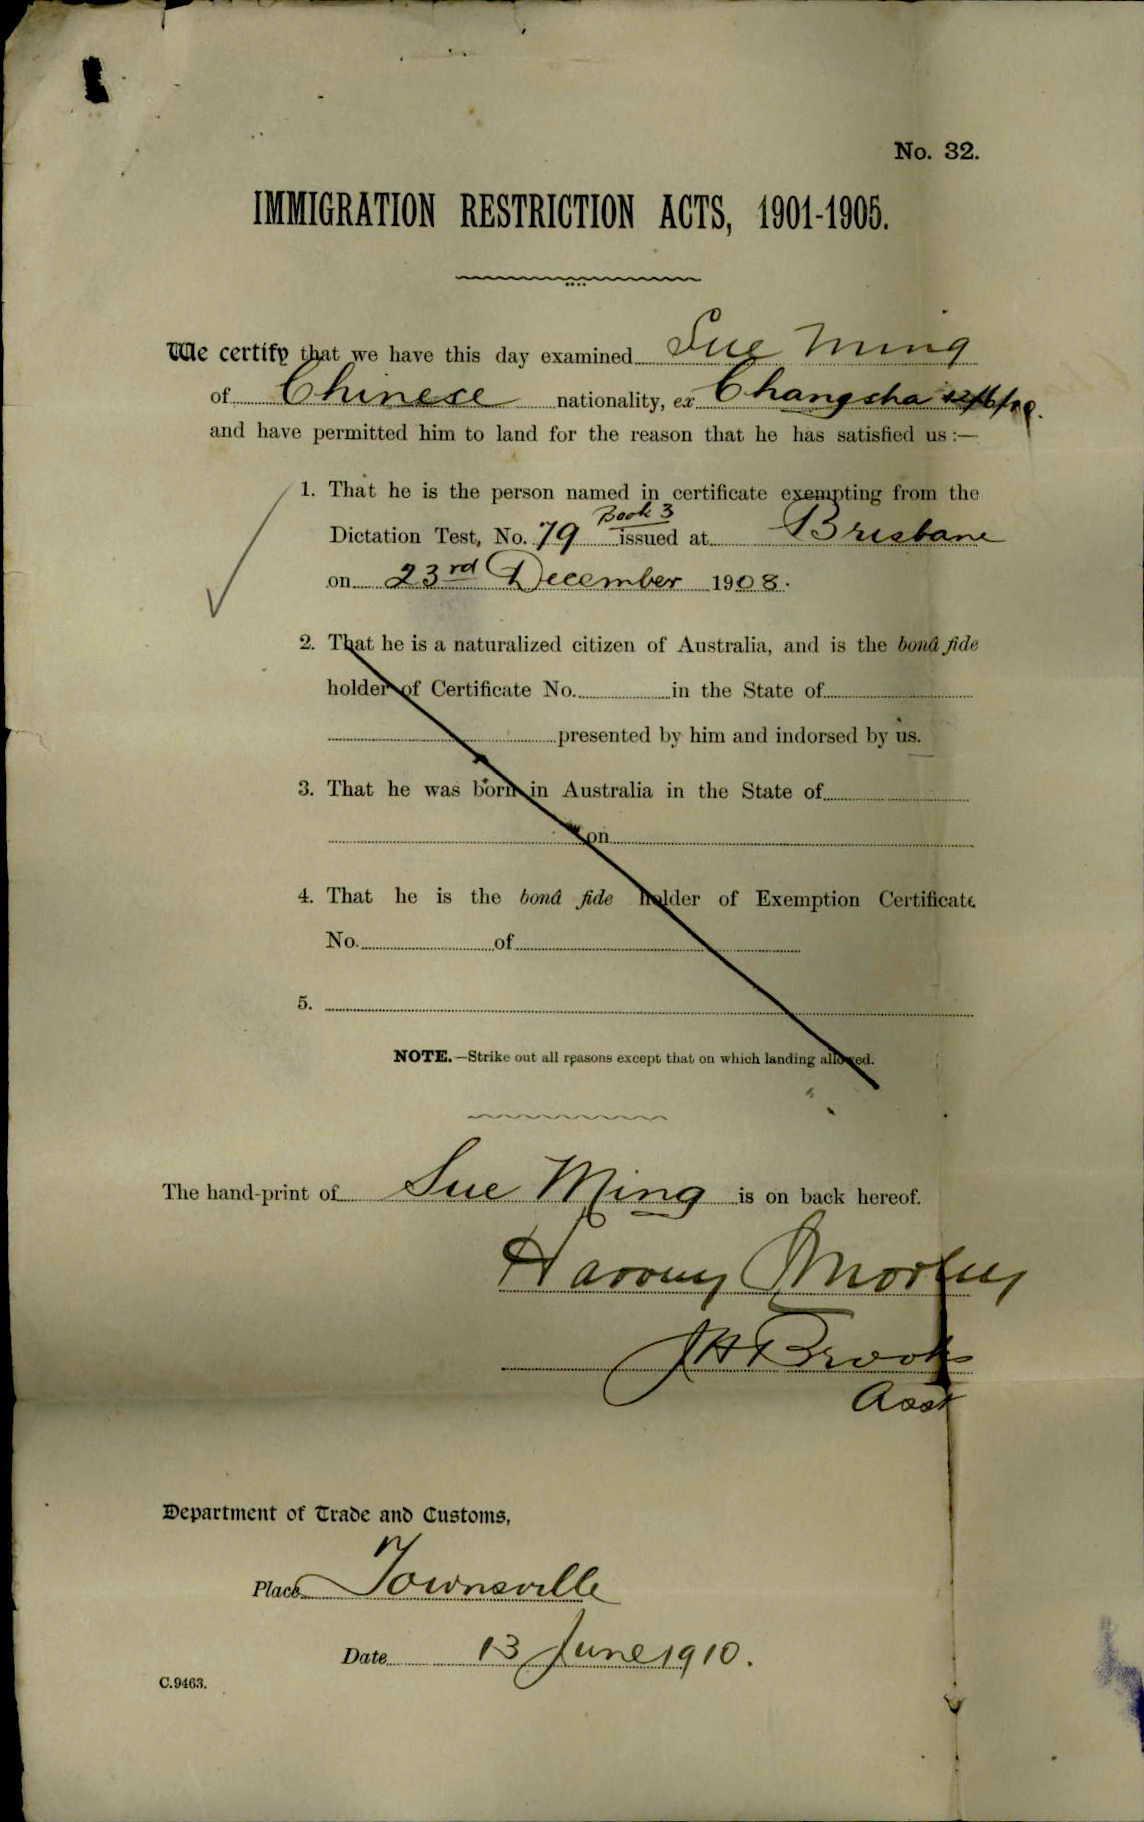 No. 32.
IMMIGRATION RESTRICTION ACTS, 1901-1905.
We certify that we have this day examined Sue Ming
of Chinese nationality, ex Changsha
and have permitted him to land for the reason that he has satisfied us :—
1. That he is the person named in certificate exempting from the
Book 3
Dictation Test, No. 79 issued at Brisbane
on 23rd December 1908.
2. That he is a naturalized citizen of Australia, and is the bonâ fide
holder of Certificate No. in the State of
presented by him and indorsed by us.
3. That he was born in Australia in the State of
on
4. That he is the bonâ fide holder of Exemption Certificate
No. of
5.
NOTE.—Strike out all reasons except that on which landing allowed.
The hand-print of Sue Ming is on back hereof.
Harvey Morley
JH Brooks
Asst
Department of Trade and Customs,
Place Townsville
Date 13 June 1910.
C.9463.